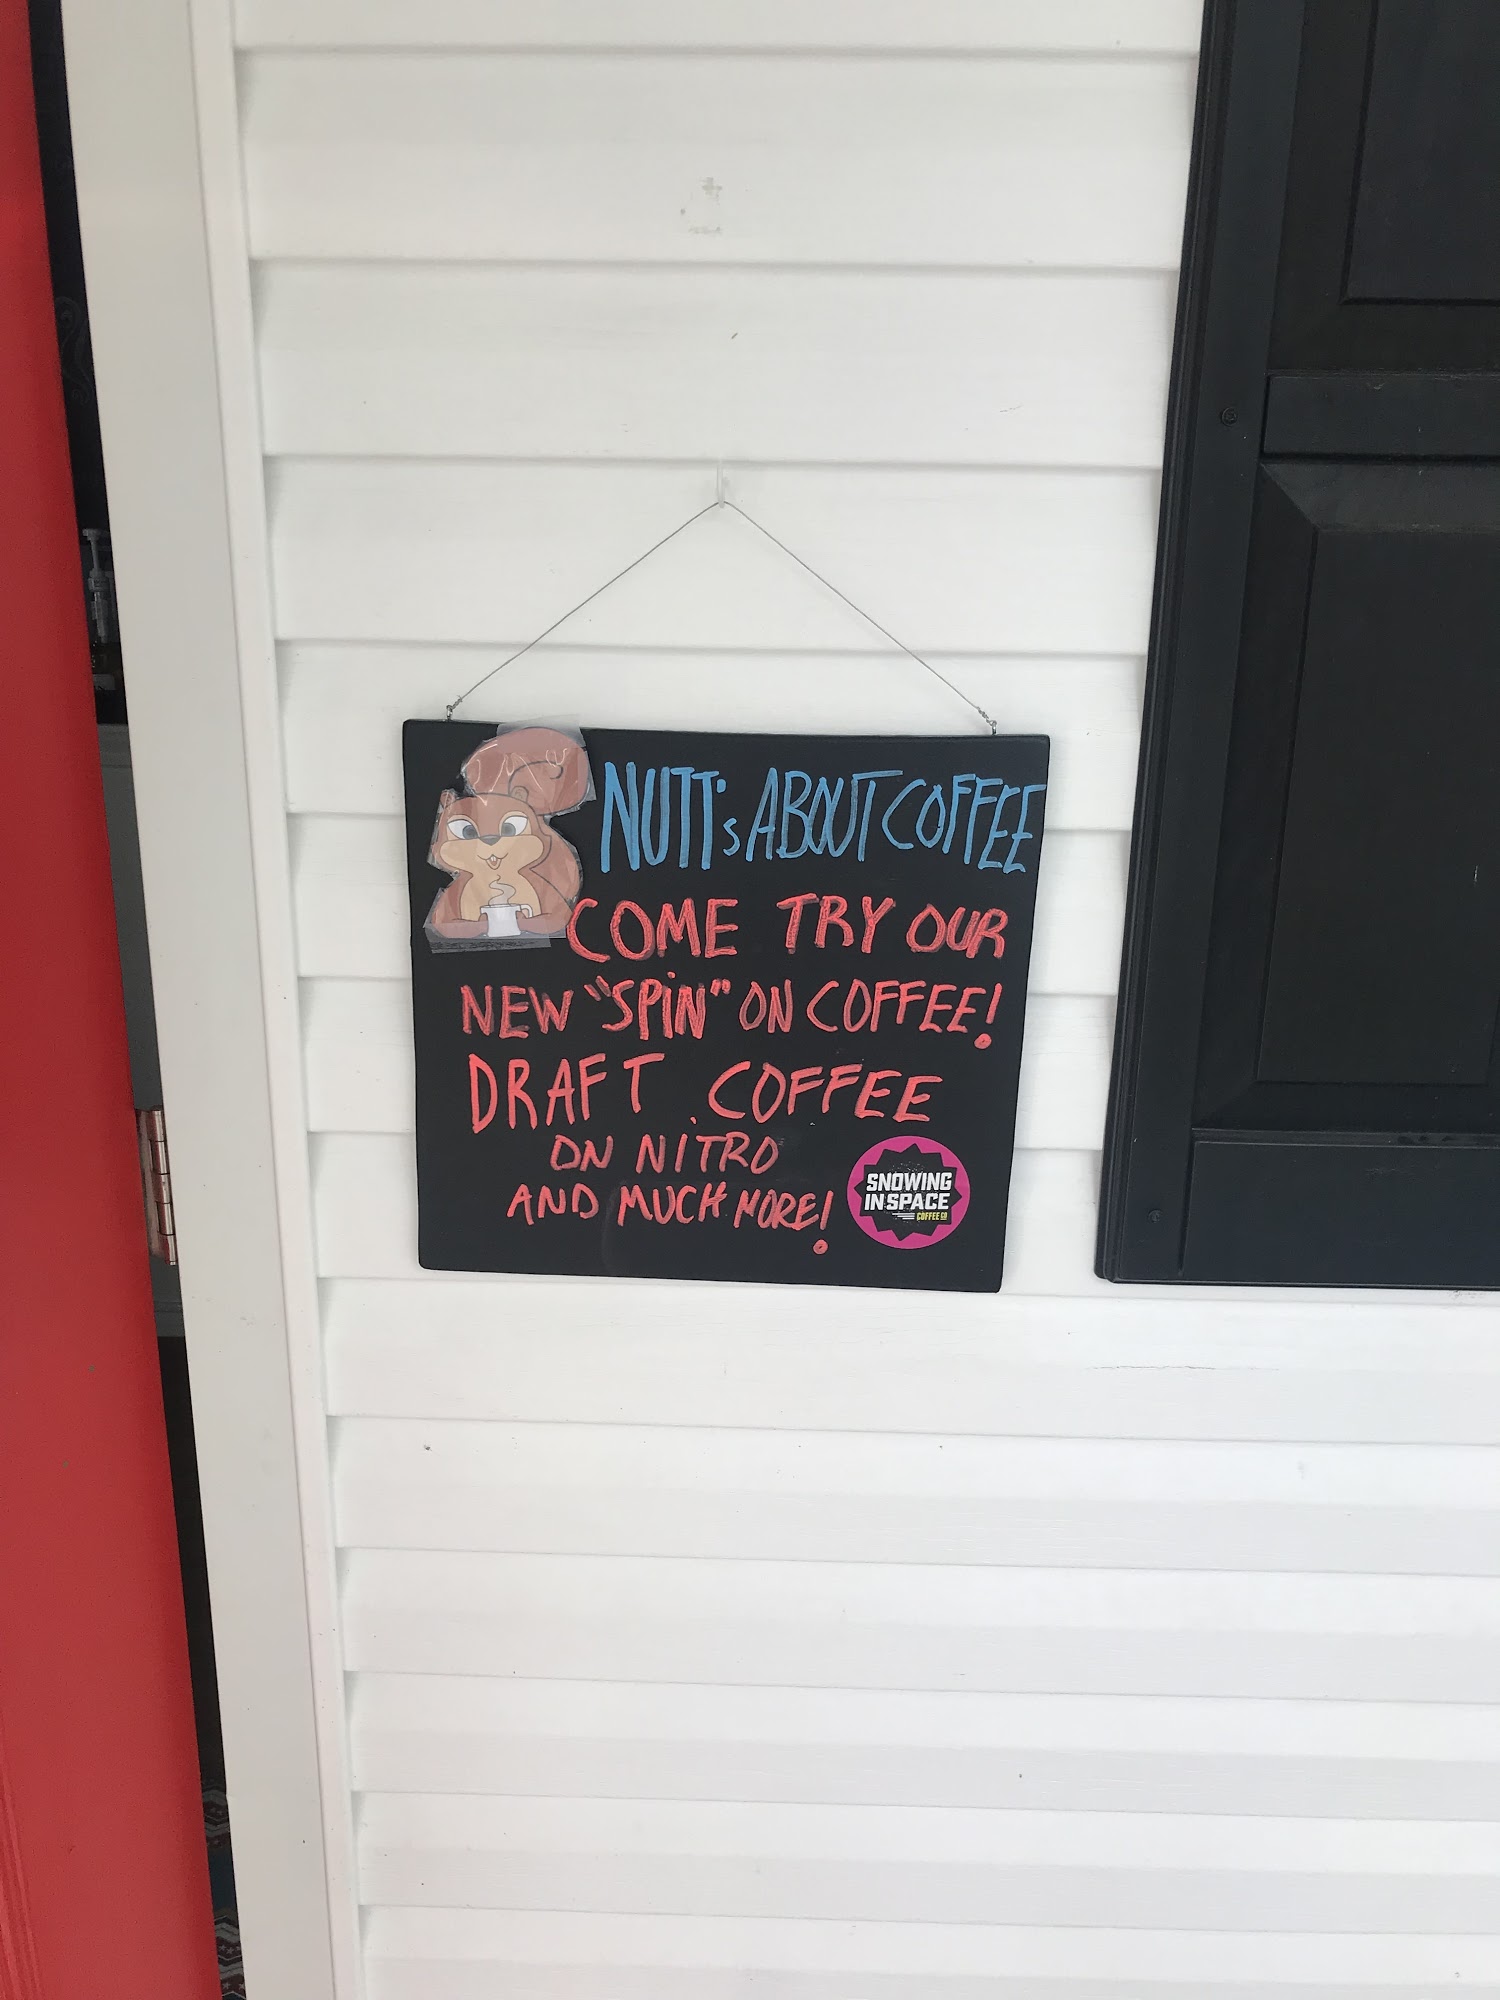 NUTT's ABOUT COFFEE
COME TRY OUR
NEW "SPiN" ON COFFEE!
DRAFT COFFEE
ON NiTRO
AND MUCH MORE!
SNOWING
IN SPACE
COFFEE CO